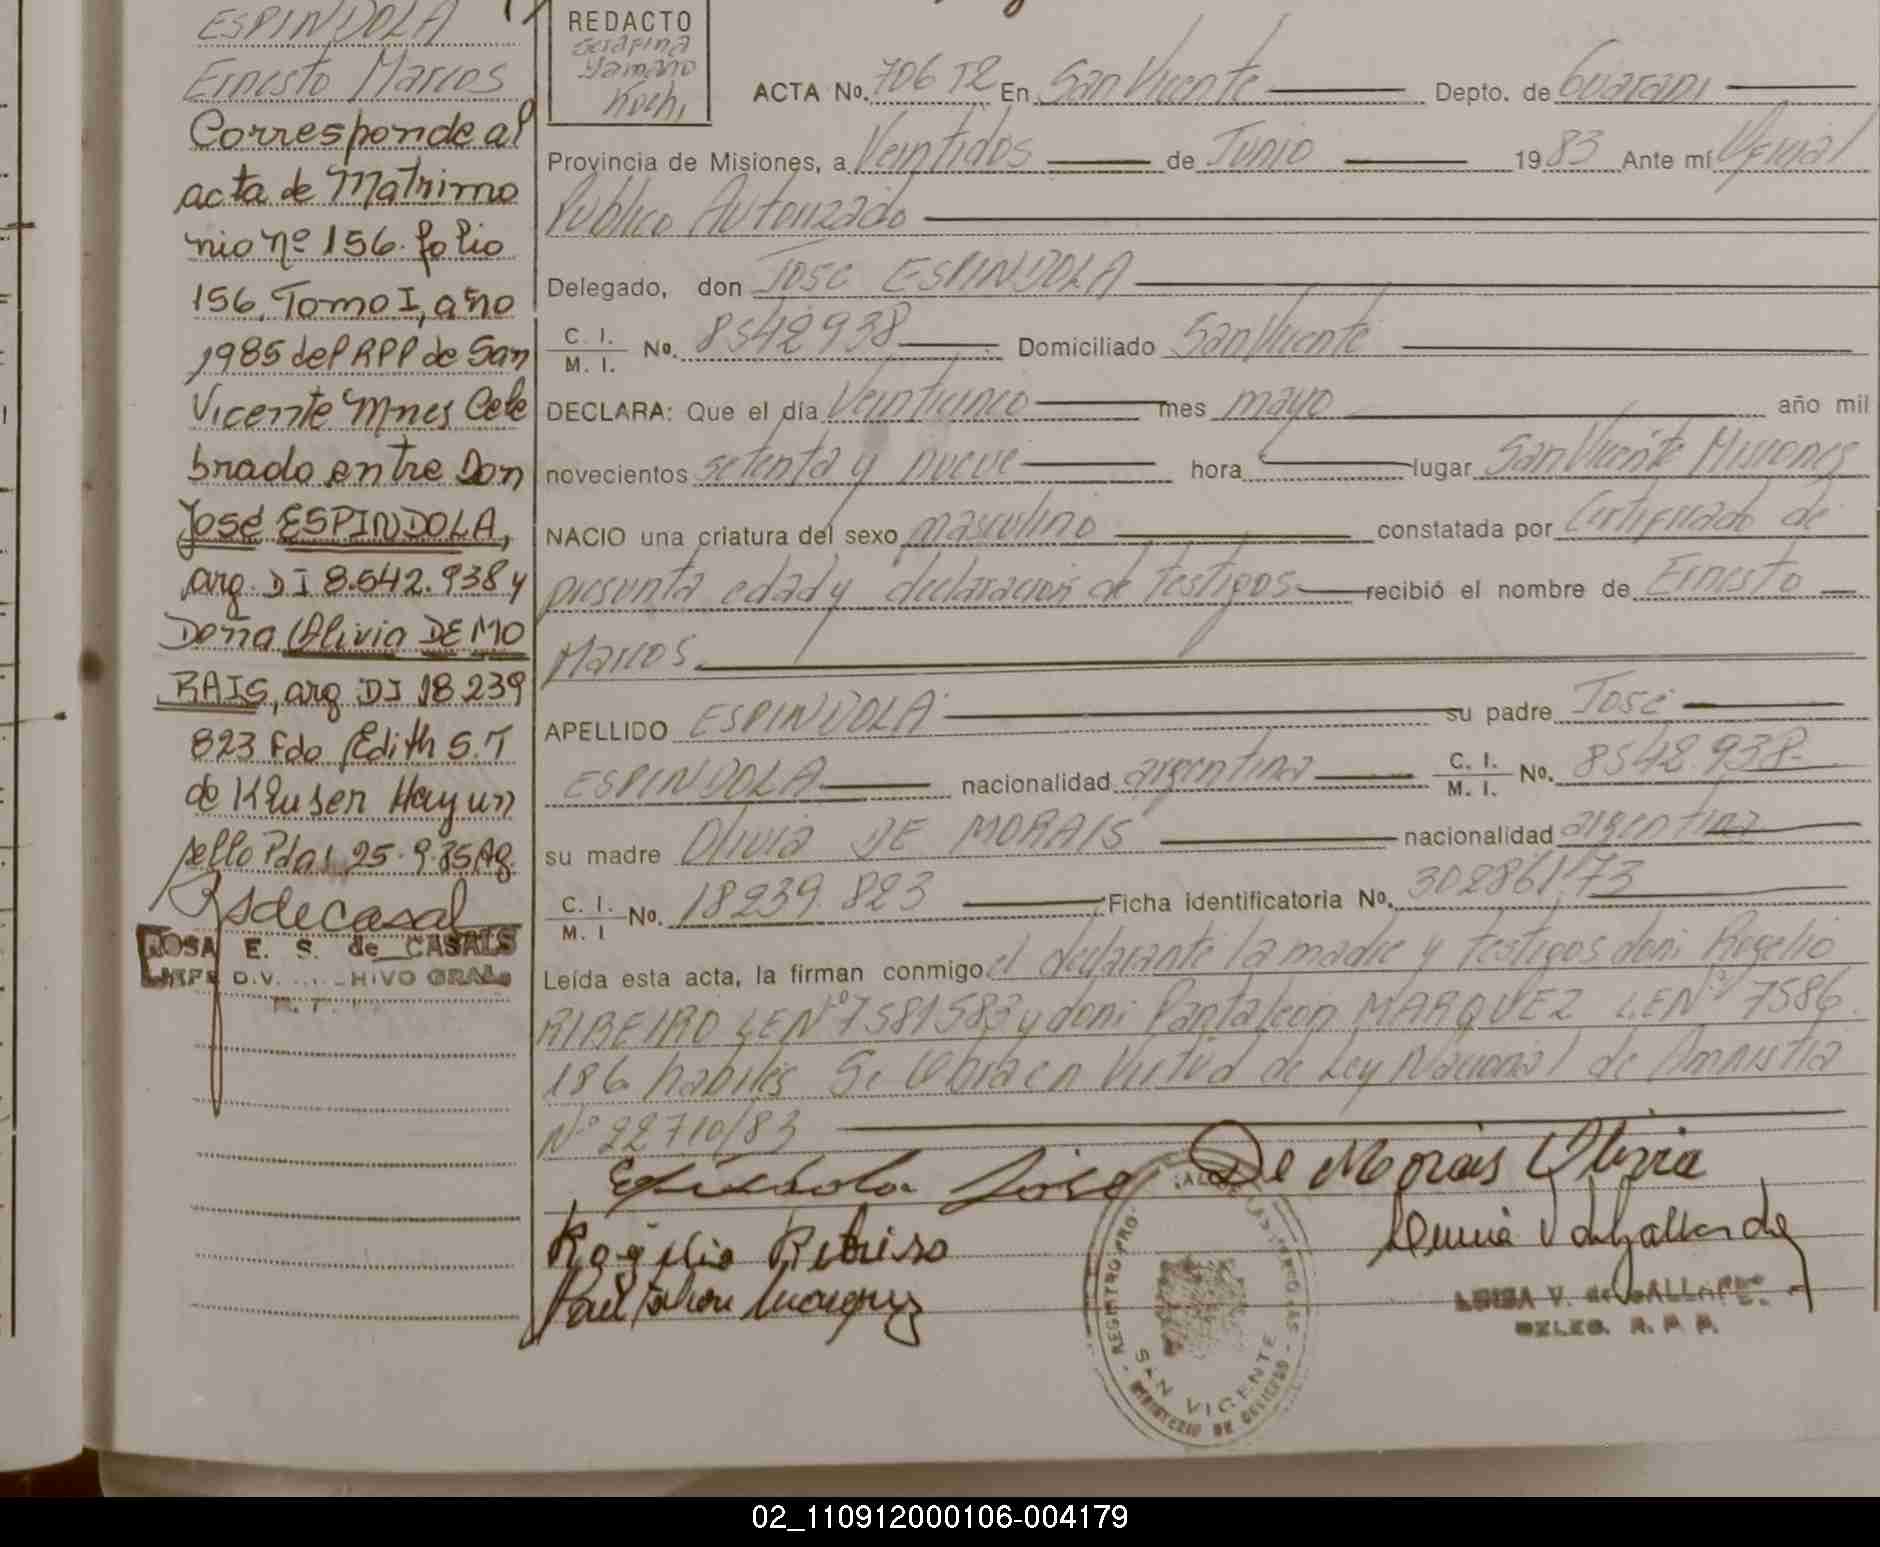 ESPINDOLA
Ernesto Marcos
Corresponde al
acta de Matrimo
nio nº 156. folio
156, Tomo I, año
1985 del RPP de San
Vicente Mnes Cele
brado entre Don
José ESPINDOLA,
arg. DI 8.542.938 y
Doña Olivia DE MO
RAIS, arg DI 18 239
823 Fdo Edith S.T
de Kluser Hay un
sello Pdas 25.9.85 Ag.
RSdeCasal
ROSA E. S. de CASALS
JEFE DIV. HIVO GRAL.
REDACTO
Serafina
Yamano
Kochi
ACTA No. 706 T2 En San Vicente Depto. de Guarani
Provincia de Misiones, a Veintidos de Junio 1983 Ante mí Oficial
Publico Autorizado
Delegado, don Jose ESPINDOLA
C. I.
M. I. No. 8542938 Domiciliado San Vicente
DECLARA: Que el día Veinticinco mes mayo año mil
novecientos setenta y nueve hora lugar San Vicente Misiones
NACIO una criatura del sexo masculino constatada por Certificado de
presunta edad y declaracion de testigos recibió el nombre de Ernesto
Marcos.
APELLIDO ESPINDOLA su padre José
ESPINDOLA nacionalidad argentina C. I.
M. I. No. 8542.938
su madre Olivia DE MORAIS nacionalidad argentina
C. I.
M. I No. 18239.823 Ficha identificatoria No. 30286173
Leída esta acta, la firman conmigo el declarante la madre y testigos don: Rogelio
RIBEIRO LE Nº 7581583 y don: Pantaleon MARQUEZ LE Nº 7586.
186 habiles Se Labra en Virtud de Ley Nacional de Amnistia
Nº 22710/83
Espindola José De Morais Olivia
Rogelio Ribeiro
Pantaleon Marquez
LUISA V. de GALLARDE
DELEG. R. P. P.
REGISTRO PRO.
SAN VICENTE
MINISTERIO DE GOBIERNO
02_110912000106-004179